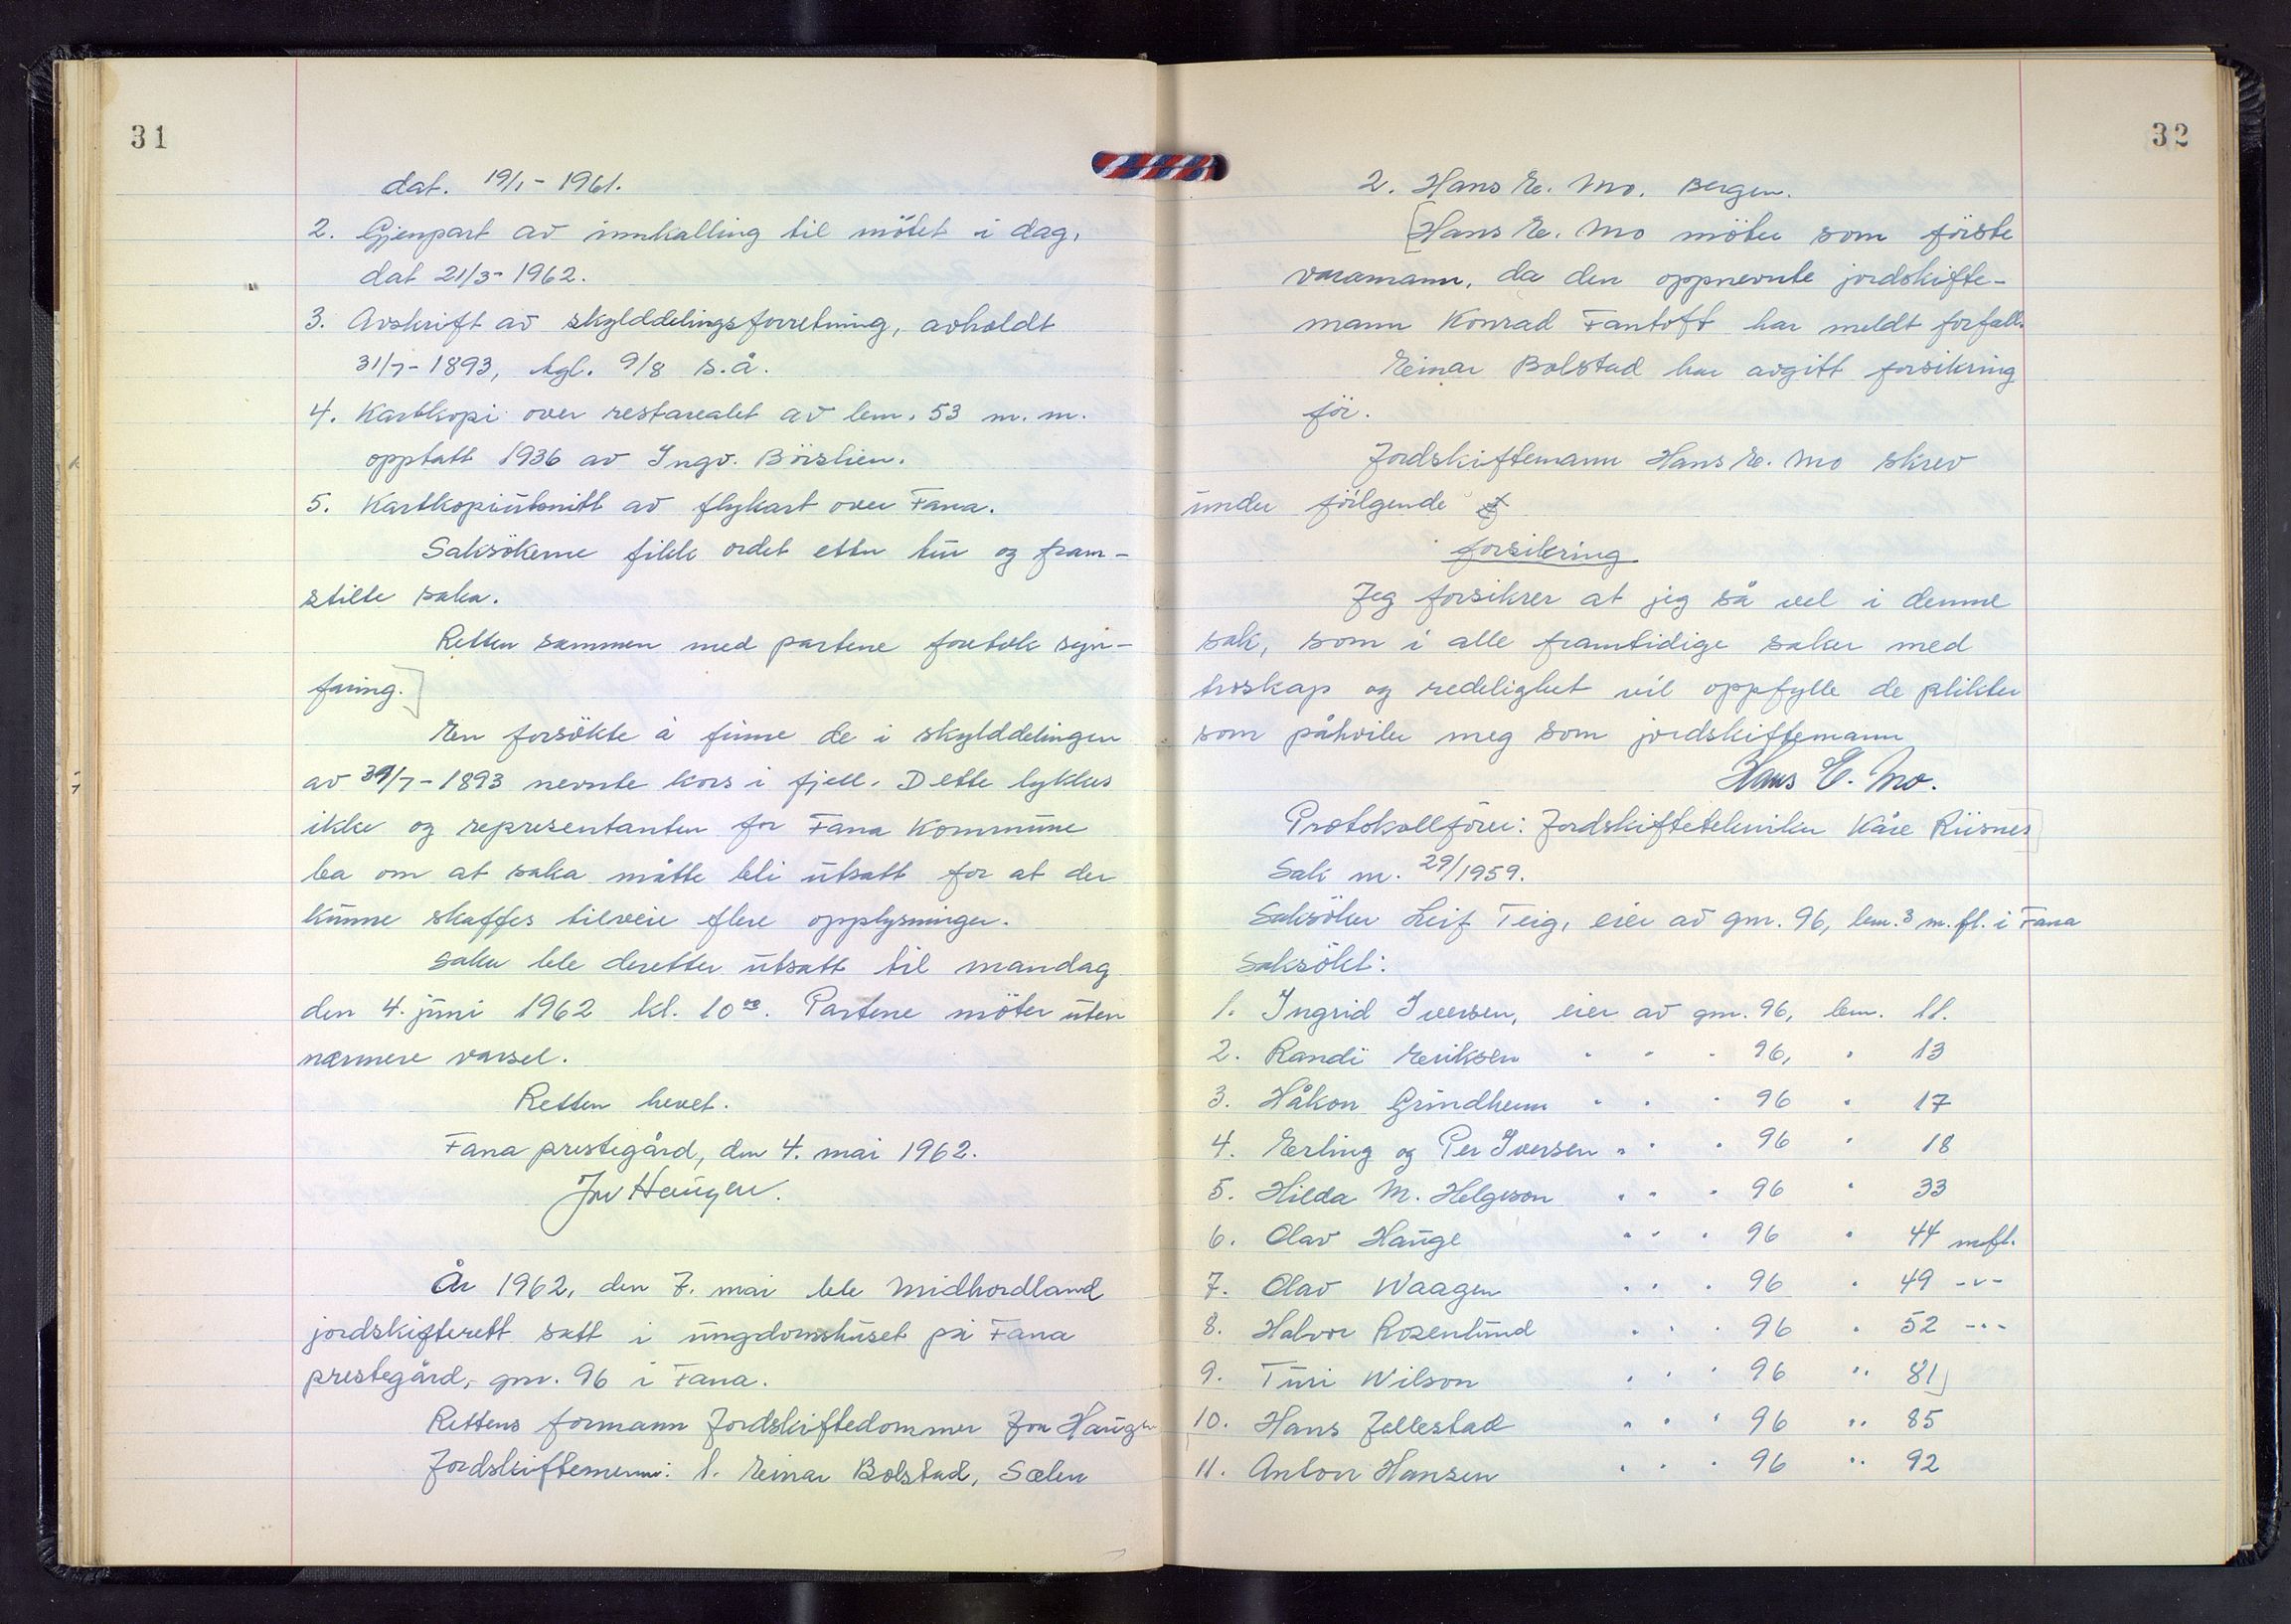 31
dat. 19/1 - 1961.
2. Gjenpart av innkalling til møtet i dag,
dat 21/3 - 1962.
3. Avskrift av skylddelingsforretning, avholdt
31/7 - 1893, tgl. 9/8 s.å.
4. Kartkopi over restarealet av bnr. 53 m.m.
opptatt 1936 av Ingv. Börslien.
5. Kartkopiutsnitt av flykart over Fana.
Saksökerne fikk ordet etter tur og fram-
stilte saka.
Retten sammen med partene foretok syn-
faring.]
En forsökte å finne de i skylddelingen
av 31/7 - 1893 nevnte kors i fjell. Dette lyktes
ikke og representanten for Fana Kommune
ba om at saka måtte bli utsatt for at der
kunne skaffes tilveie flere opplysninger.
Saka ble deretter utsatt til mandag
den 4. juni 1962 kl. 10⁰⁰. Partene möter uten
nærmere varsel.
Retten hevet.
Fana prestegård, den 4. mai 1962.
Jon Haugen.
År 1962, den 7. mai ble Midhordland
jordskifterett satt i ungdomshuset på Fana
prestegård, gnr. 96 i Fana.
Rettens formann Jordskiftedommer Jon Haugen
Jordskiftemenn: 1. Einar Bolstad, Sælen
32
2. Hans E. Mo. Bergen.
[Hans E. Mo möter som förste
varamann, da den oppnevnte jordskifte-
mann Konrad Fantoft har meldt forfall.
Einar Bolstad har avgitt forsikring
för.
Jordskiftemann Hans E. Mo skrev
under fölgende
forsikring
Jeg forsikrer at jeg så vel i denne
sak, som i alle framtidige saker med
troskap og redelighet vil oppfylle de plikter
som påhviler meg som jordskiftemann
Hans E. Mo.
Protokollförer: Jordskiftetekniker Kåre Riisnes]
Sak nr. 29/1959.
Saksöker Leif Teig, eier av gnr. 96, bnr. 3 m.fl. i Fana
Saksökt:
1. Ingrid Iversen, eier av gnr. 96, bnr. 11.
2. Randi Eriksen " " " 96, " 13
3. Håkon Grindheim " " " 96 " 17
4. Erling og Per Iversen " " " 96 " 18
5. Hilda M. Helgeson " " " 96 " 33
6. Olav Hauge " " " 96 " 44 m.fl.
7. Olav Waagen " " " 96 " 49 -"-
8. Halvor Rosenlund " " " 96 " 52 -"-
9. Turi Wilson " " " 96 " 81]
10. Hans Jellestad " " " 96 " 85
11. Anton Hansen " " " 96 " 92